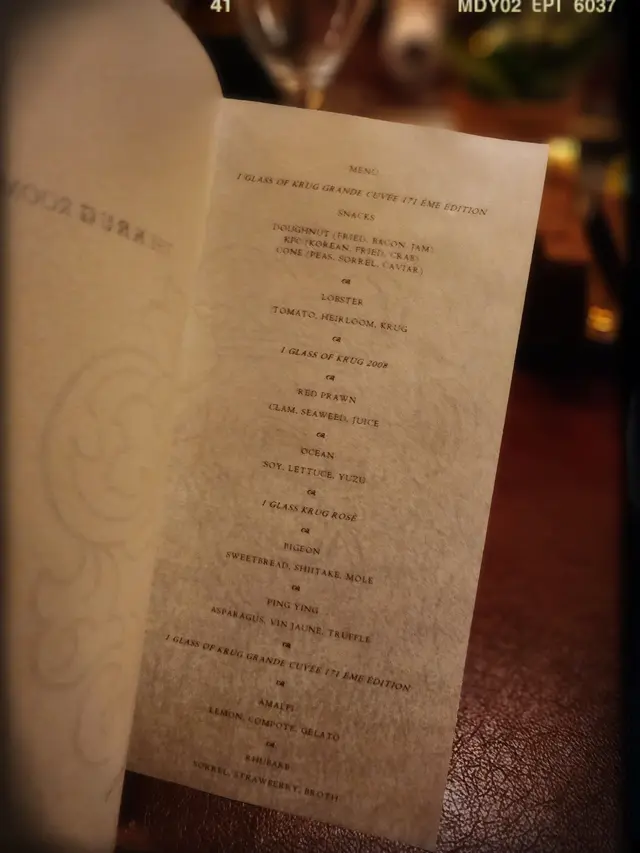 41
MDY02 EPT 6037
KRUG ROOM
MENU
1 GLASS OF KRUG GRANDE CUVÉE 171 ÈME ÉDITION
SNACKS
DOUGHNUT (FRIED, BACON, JAM)
KFC (KOREAN, FRIED, CRAB)
CONE (PEAS, SORREL, CAVIAR)
LOBSTER
TOMATO, HEIRLOOM, KRUG
1 GLASS OF KRUG 2008
RED PRAWN
CLAM, SEAWEED, JUICE
OCEAN
SOY, LETTUCE, YUZU
1 GLASS KRUG ROSÉ
PIGEON
SWEETBREAD, SHIITAKE, MOLE
PING YING
ASPARAGUS, VIN JAUNE, TRUFFLE
1 GLASS OF KRUG GRANDE CUVÉE 171 ÈME ÉDITION
AMALFI
LEMON, COMPOTE, GELATO
RHUBARB
SORREL, STRAWBERRY, BROTH